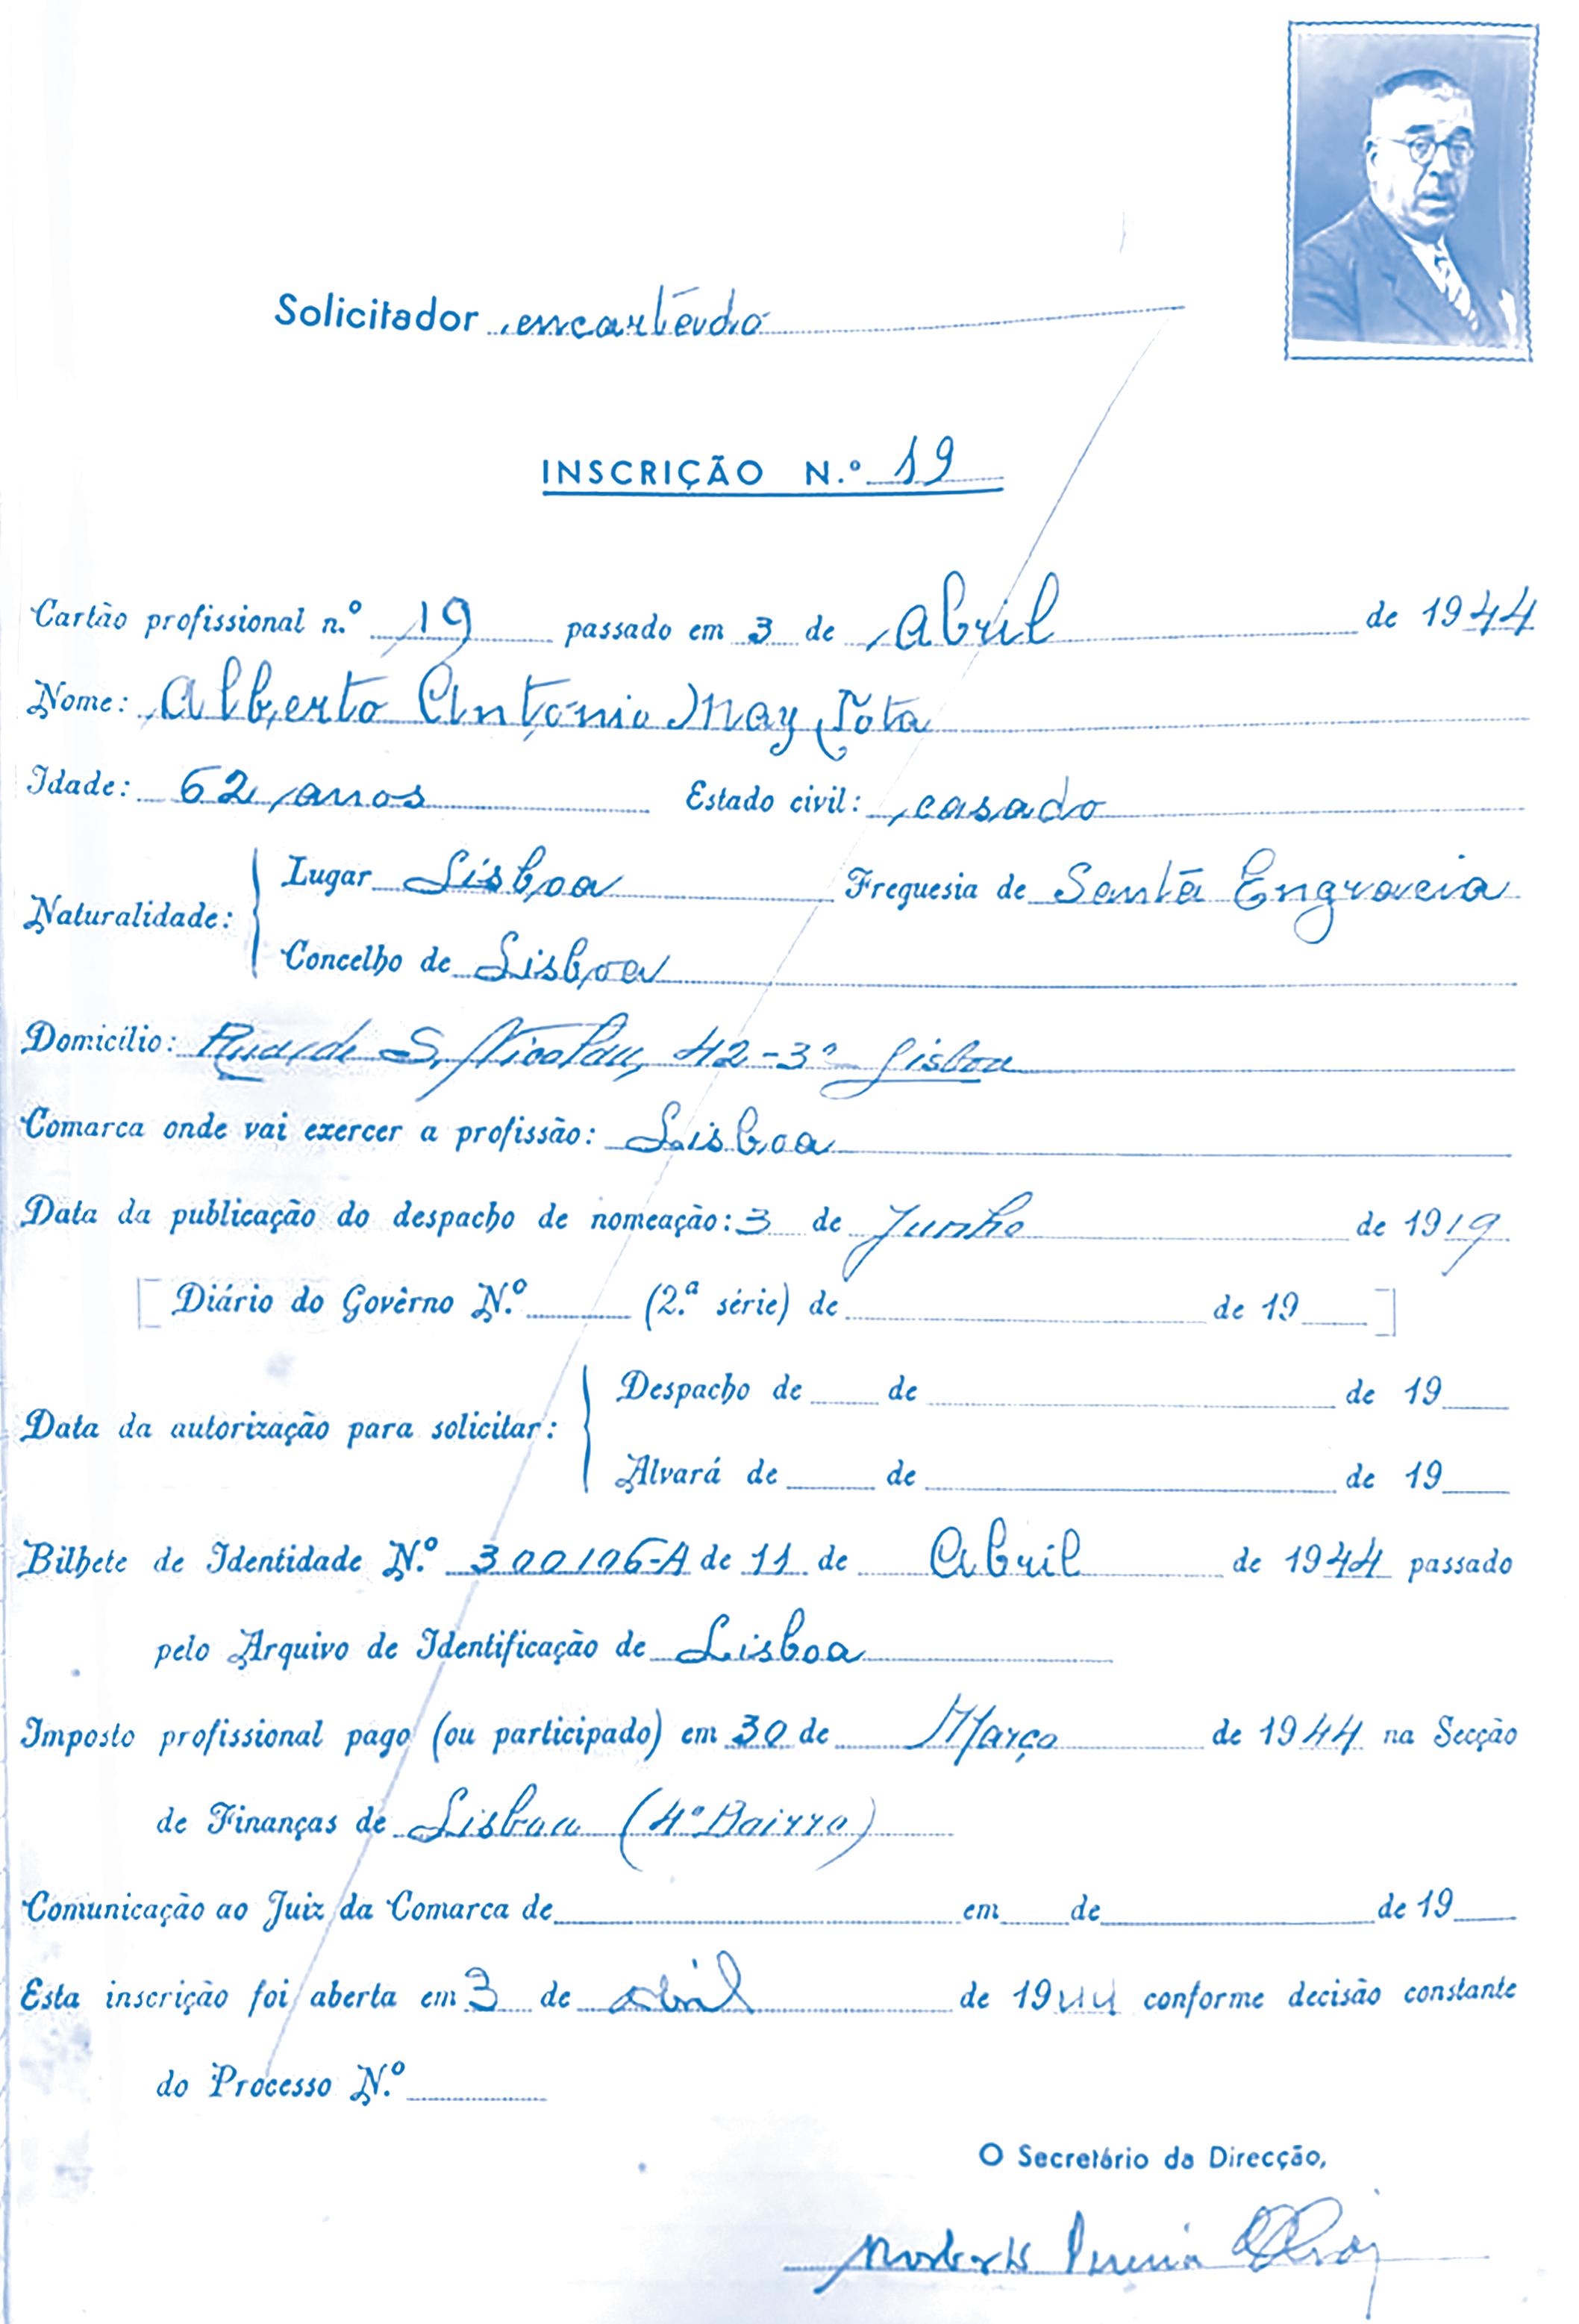 Solicitador encartado
INSCRIÇÃO N.º 19
Cartão profissional n.º 19 passado em 3 de Abril de 1944
Nome: Alberto António May Tota
Idade: 62 anos Estado civil: casado
Naturalidade: Lugar Lisboa Freguesia de Santa Engracia
Concelho de Lisboa
Domicílio: Rua de S. Nicolau, 42-3º Lisboa
Comarca onde vai exercer a profissão: Lisboa
Data da publicação do despacho de nomeação: 3 de Junho de 1919
[Diário do Govêrno N.º (2.ª série) de de 19 ]
Data da autorização para solicitar: Despacho de de de 19
Alvará de de de 19
Bilhete de Identidade N.º 300106-A de 11 de Abril de 1944 passado
pelo Arquivo de Identificação de Lisboa
Imposto profissional pago (ou participado) em 30 de Março de 1944 na Secção
de Finanças de Lisboa (4º Bairro)
Comunicação ao Juiz da Comarca de em de de 19
Esta inscrição foi aberta em 3 de abril de 1944 conforme decisão constante
do Processo N.º
O Secretário da Direcção,
Pereira